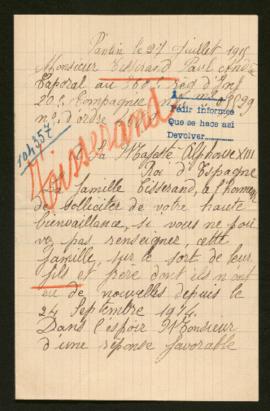 Pantin le 27 Juillet 1915
Monsieur Tisserand Paul
Caporal au 360e Reg d'Inf
20e Compagnie
n° d'ordre
Pedir informes
Que se hace así
Devolver
104357
Tisserand
A la Majesté Alphonse XIII
Roi d'Espagne
La famille Tisserand, à l'honneur
de solliciter de votre haute
bienvaillance, si vous ne pou
vez pas renseigner, cette
famille, sur le sort de leur
fils et père dont ils n'ont
eu de nouvelles depuis le
24 Septembre 1914.
Dans l'espoir Monsieur
d'une réponse favorable